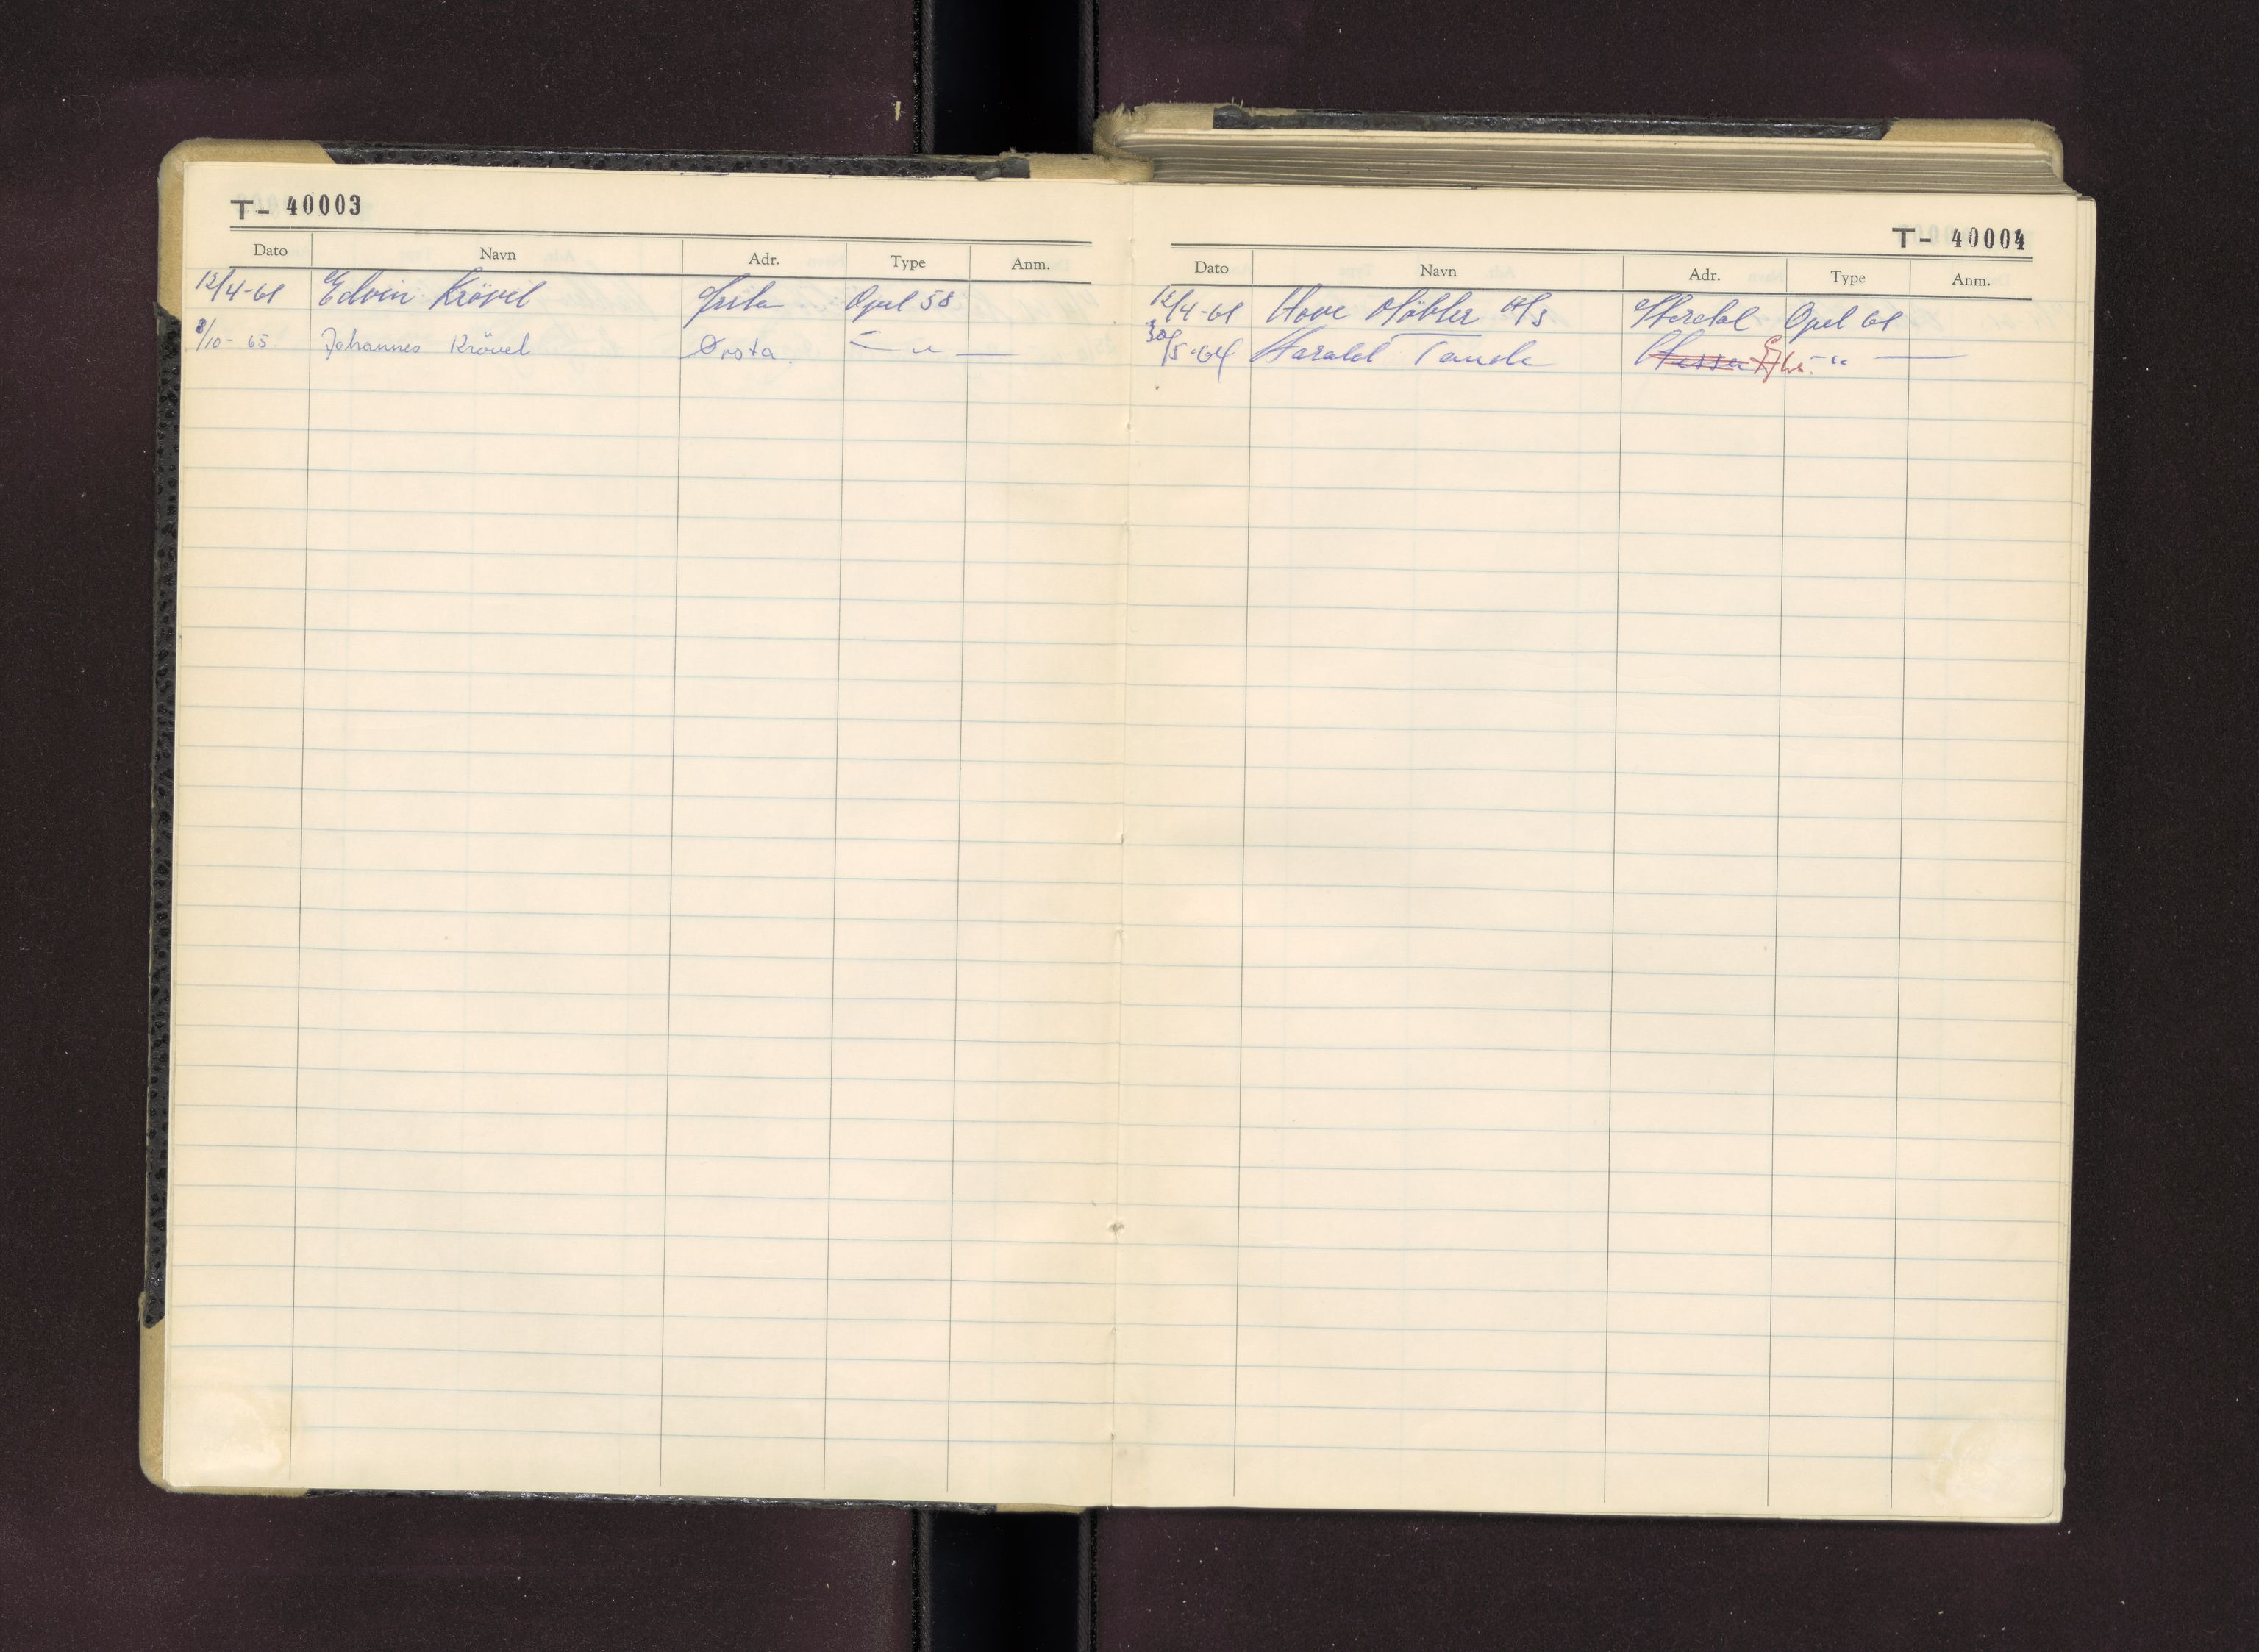 T- 40003
Dato Navn Adr. Type Anm.
12/4-61 Edvin Krövel Ørsta Opel 58
8/10-65. Johannes Krövel Ørsta. — " —
T- 40004
Dato Navn Adr. Type Anm.
12/4-61 Hove Möbler A/s Stordal Opel 61
30/5-64 Harald Tande - " —